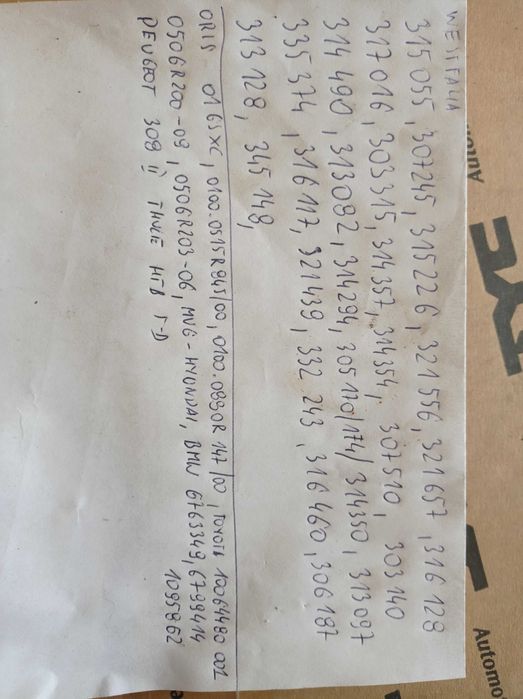 WESTFALIA
315055, 307245, 315226, 321556, 321657, 316128
317016, 303315, 314357, 314354, 307510, 303140
314490, 313082, 314294, 305170/174/ 314350, 313097
335374, 316117, 321439, 332 243, 316460, 306187
313128, 345148,
ORIS - 0165XC, 0100.0515R845/00, 0100.0890R 147/00, TOYOTA 10064480 002
0506R200-09, 0506R203-06, MVG - HYUNDAI, BMW 6763349, 6799414
1095862
PEUGEOT 308 II THULE
Automo
Automo